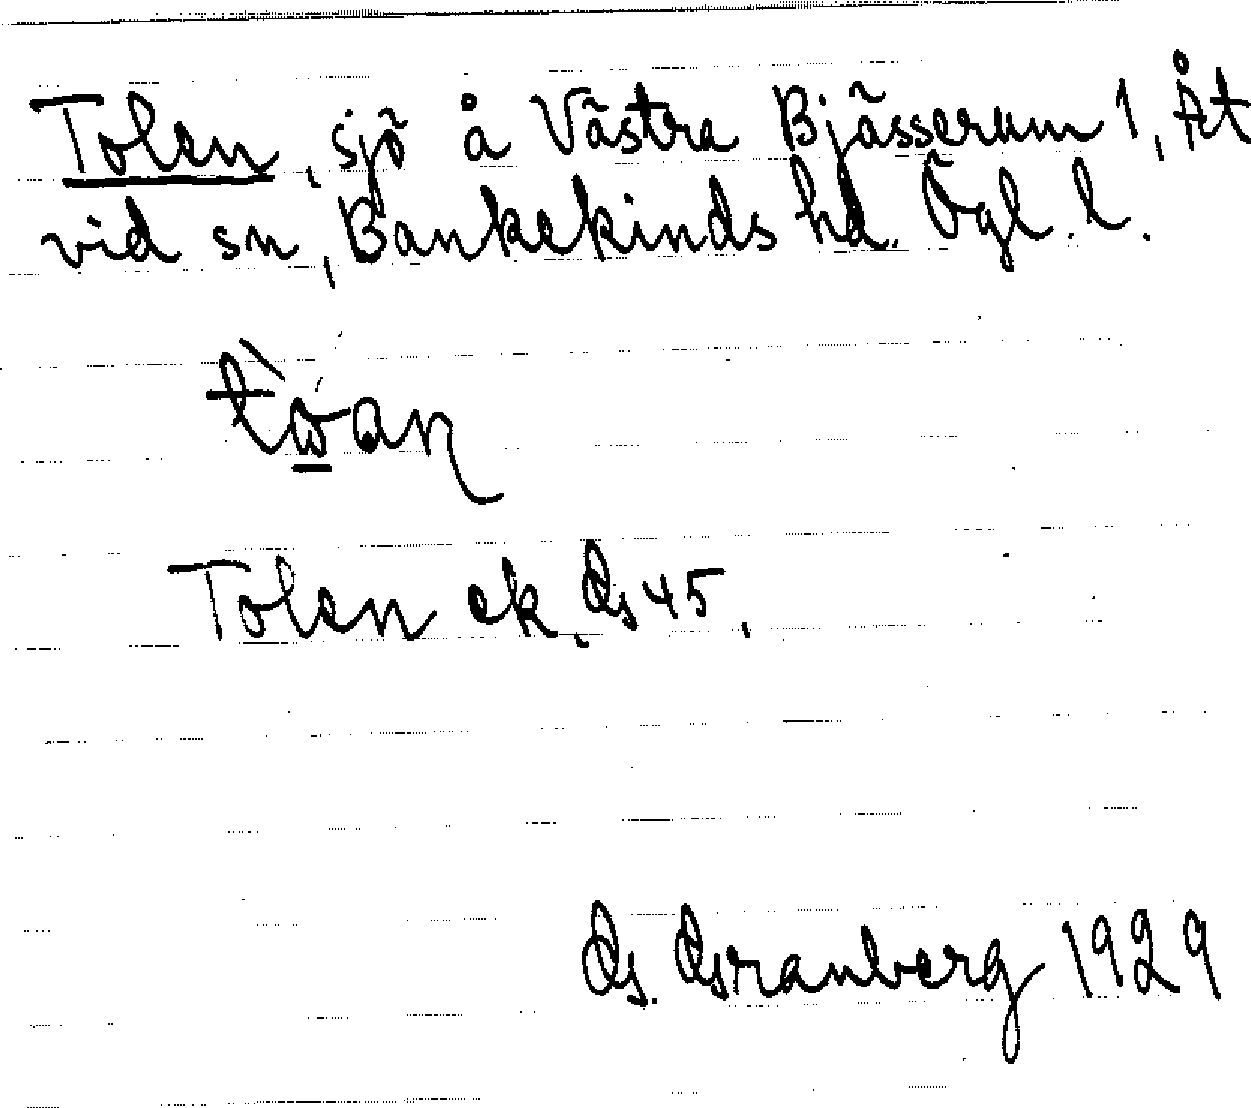 Tolen, sjö å Västra Bjässerum 1, Åt
vid sn, Bankekinds hd. Ögl. l.
Tolen ek. G 45.
G. Granberg 1929